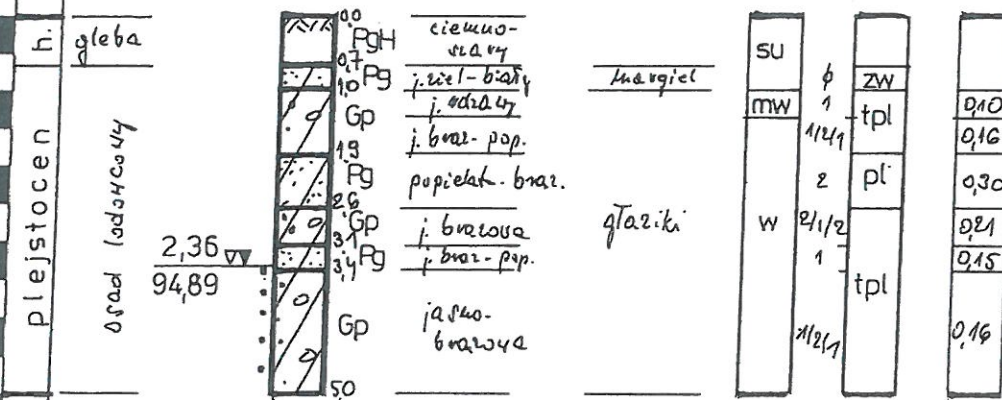 h.
plejstocen
gleba
osad lodowcowy
2,36
94,89
0,0
0,7
1,0
1,9
2,6
3,1
3,4
5,0
PgH
Pg
Gp
Pg
Gp
Pg
Gp
ciemno-
szary
j. ziel-biały
j. rdzawy
j. brąz-pop.
popielat-brąz.
j. brązowa
j. brąz-pop.
jasno-
brązowa
margiel
głaziki
su
mw
w
φ
1
1/2/1
2
2/1/2
1
1/2/1
zw
tpl
pl
tpl
0,10
0,16
0,30
0,21
0,15
0,16